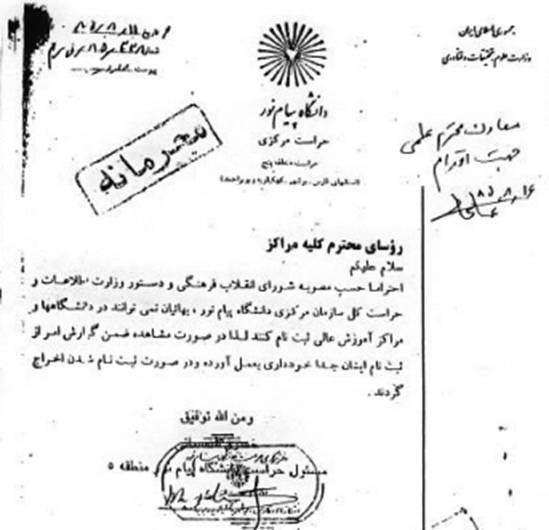 جمهوری اسلامی ایران
وزارت علوم، تحقیقات و فناوری
دانشگاه پیام نور
حراست مرکزی
حراست منطقه پنج
(استانهای فارس، بوشهر، کهگیلویه و بویراحمد)
محرمانه
معاونت محترم علمی
جهت اقدام
۸۵،۸،۱۶
رؤسای محترم کلیه مراکز
سلام علیکم
احتراما حسب مصوبه شورای انقلاب فرهنگی و دستور وزارت اطلاعات و
حراست کل سازمان مرکزی دانشگاه پیام نور ، بهائیان نمی توانند در دانشگاهها و
مراکز آموزش عالی ثبت نام کنند لذا در صورت مشاهده ضمن گزارش امر از
ثبت نام ایشان جدا خودداری بعمل آورده ودر صورت ثبت نام شدن اخراج
گردند .
ومن الله توفیق
مسئول حراست دانشگاه پیام نور منطقه ۵